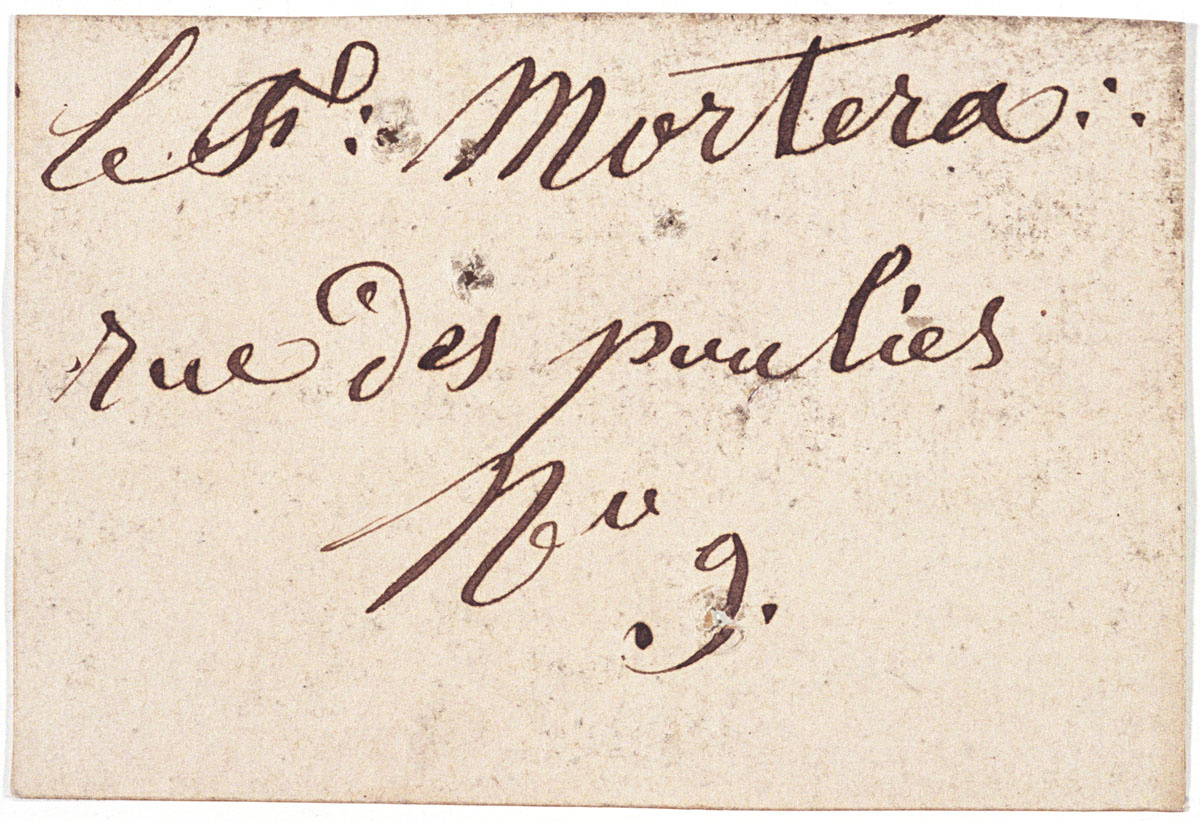 le F: Mortera:.
rue des poulies
No 9.